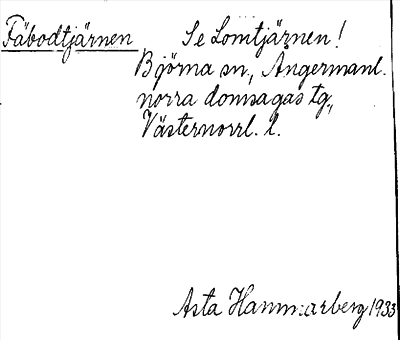 Fäbodtjärnen Se Lomtjärnen!
Björna sn., Ångermanl.
norra domsagas tg.,
Västernorrl. l.
Asta Hammarberg 1933